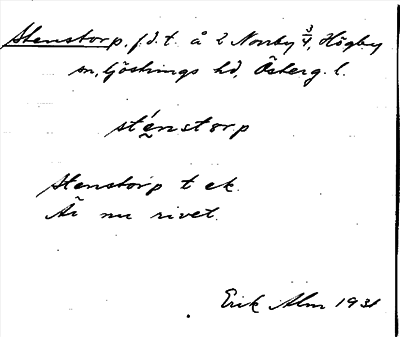 Stenstorp, f.d. t. å 2 Norrby 3/4, Högby
sn, Göstrings hd, Österg. l.
sténstorp
Stenstorp t ek.
Är nu rivet.
Erik Alm 1931